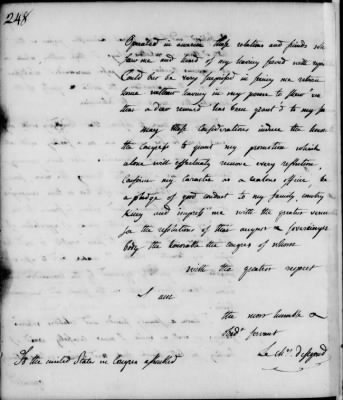 248
Operated in america those relations and friends who
saw me and heard of my having served with
Could but be very surprised in seeing me return
home without having in my power to shew
that a dear reward has been grant'd to my
may these Considerations induce the honble
the Congress to grant my promotion which
alone will effectually remove every reflection
Confirm my Caracter as a zealous officer be
a pledge of good conduct to my family, country
King and impress me with the greatest
for the resolutions of that august & sovereign
body the honorable the Congress of whom
with the greatest respect
I am
the most humble &
obedt servant
Le chr.
To the united State in Congress assembled